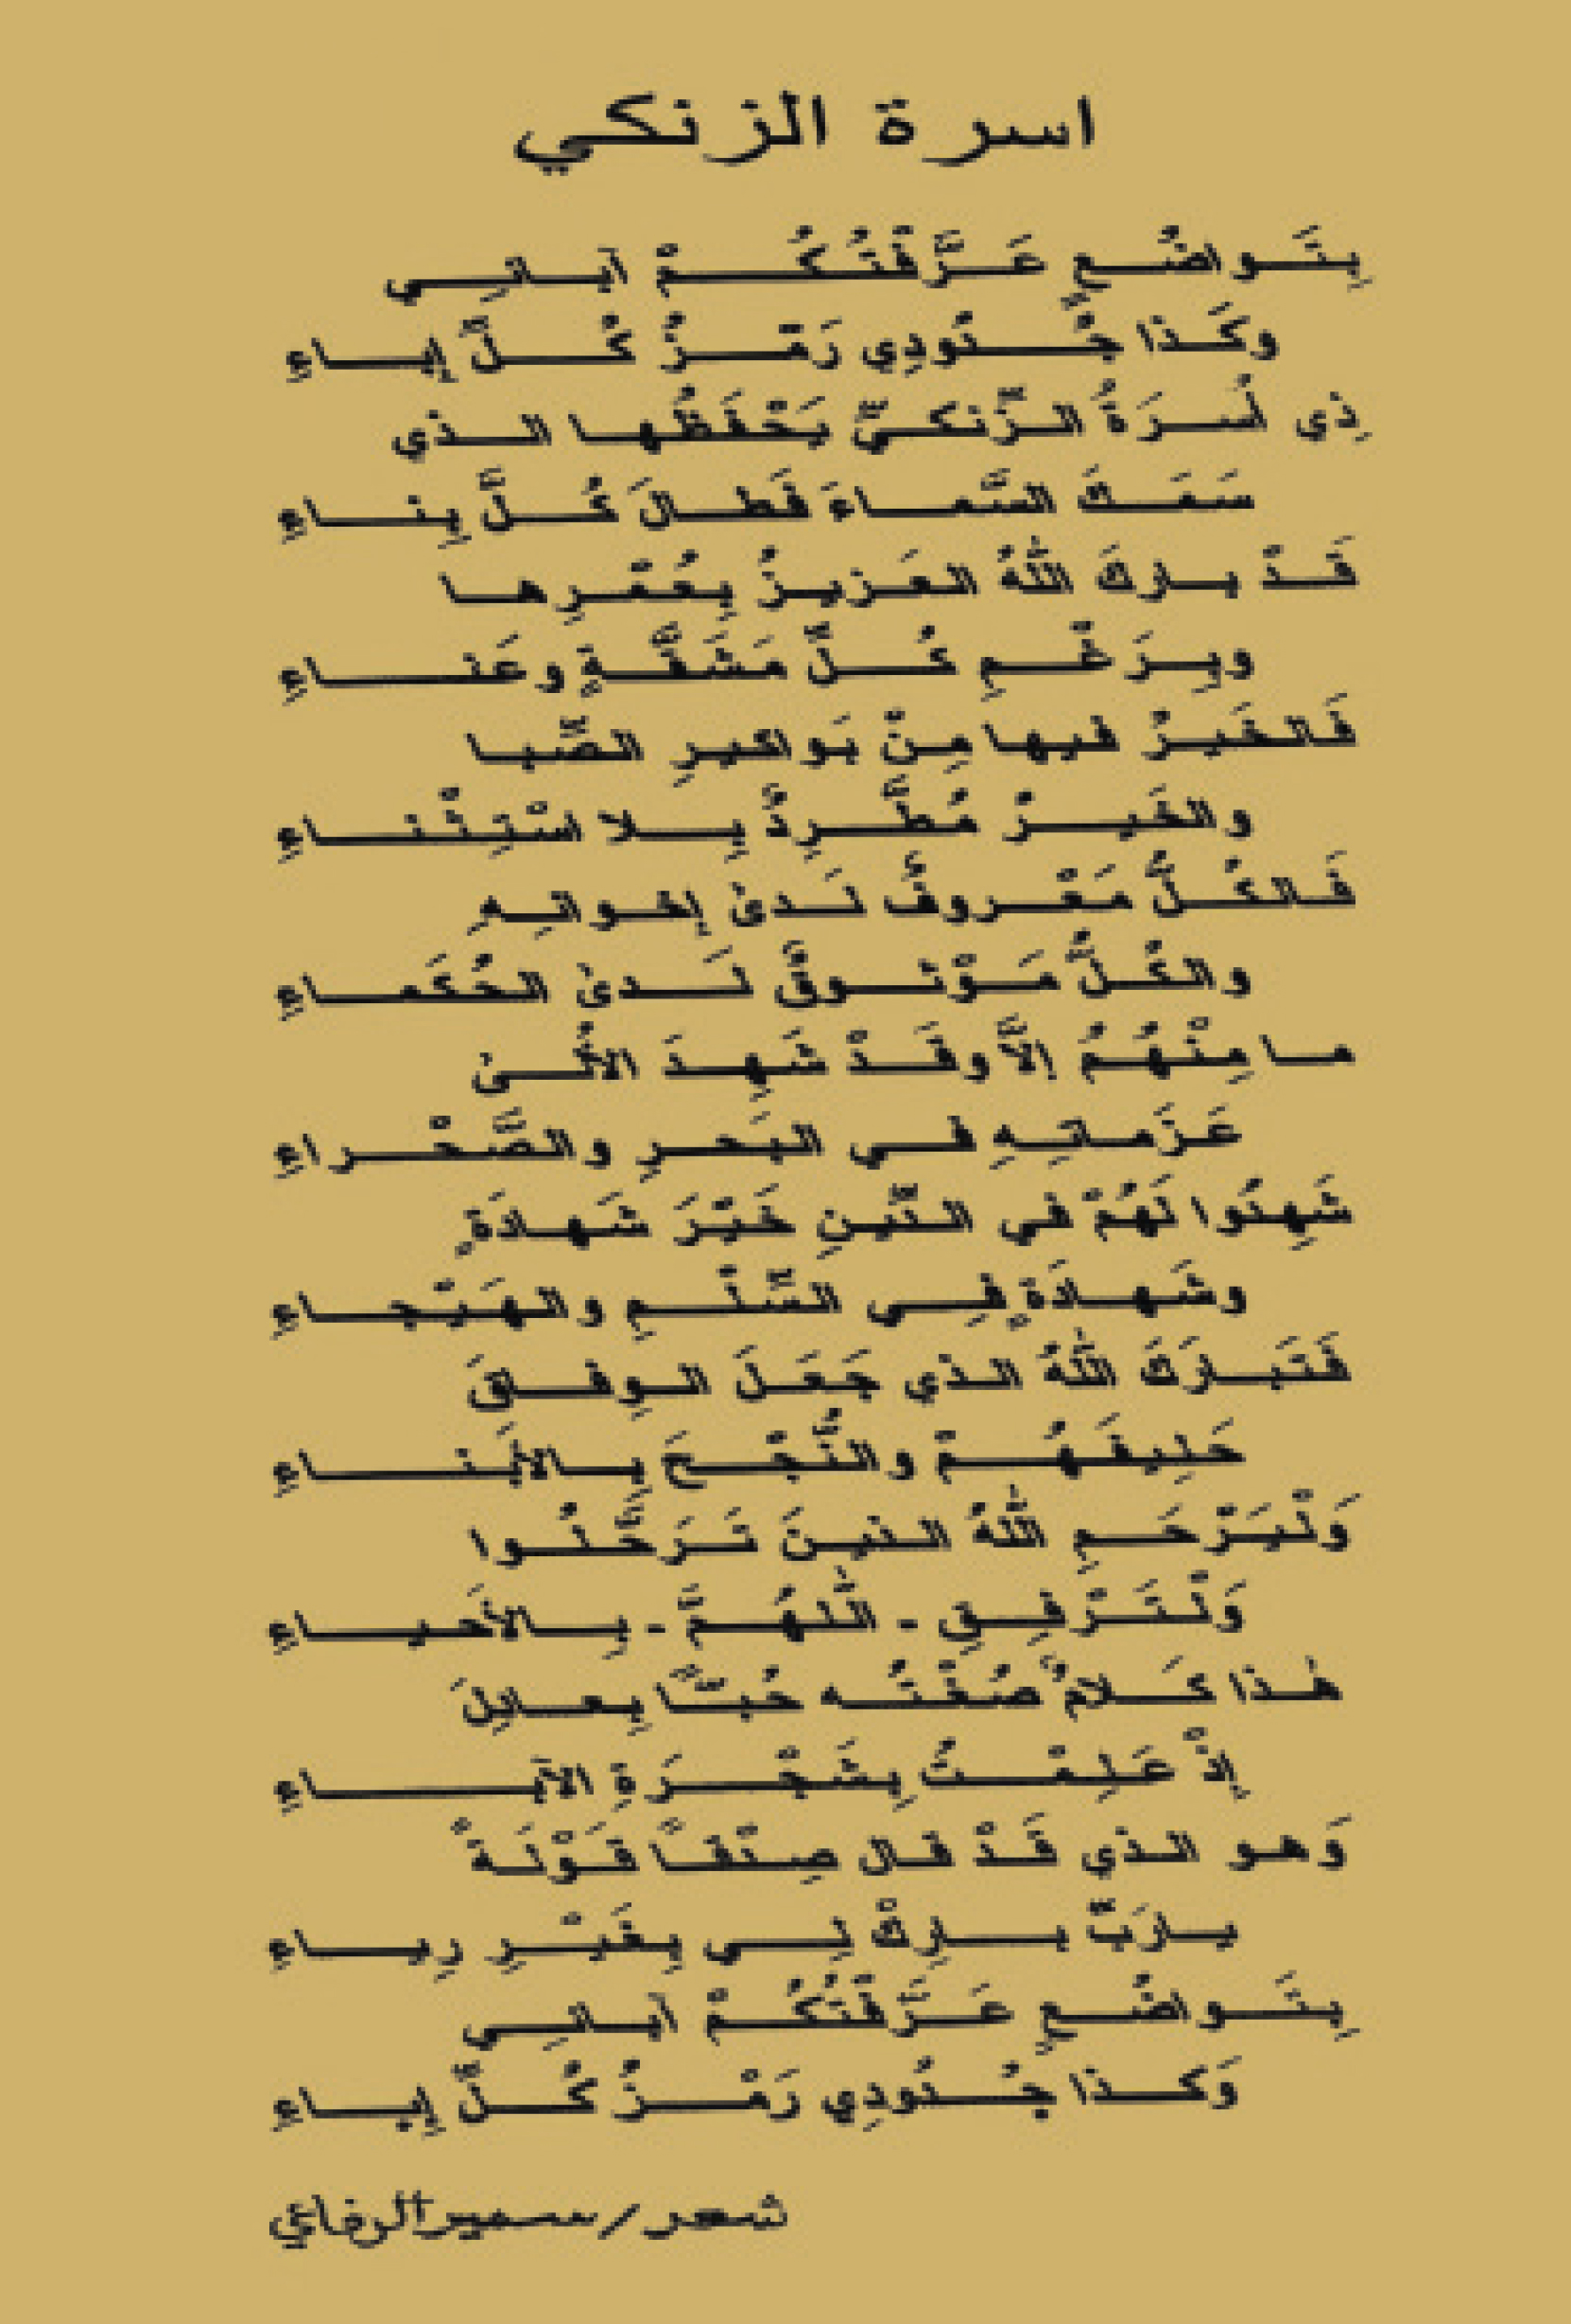 اسرة الزنكي
بِتَواضُعٍ عَرَّفْتُكُمْ آبائي
وكَذا جُدُودِي رَمْزُ كُلِّ إِباءِ
ذِي أُسرَةُ الزّنكيِّ يَحْفَظُها الذي
سَمَكَ السَّماءَ فَطالَ كُلَّ بِناءِ
قَدْ بارَكَ اللهُ العَزيزُ بِعُمْرِها
وبِرَغْمِ كُلِّ مَشَقَّةٍ وعَناءِ
فَالخَيرُ فيها مِنْ بَواكيرِ الصِّبا
والخَيرُ مُطَّرِدٌ بِلا اسْتِثْناءِ
فَالكُلُّ مَعْروفٌ لَدىٰ إخوانِهِ
والكُلُّ مَوْثوقٌ لَدىٰ الحُكَماءِ
ما مِنْهُمُ إلّا وقَدْ شَهِدَ الأُلىٰ
عَزَماتِهِ في البَحرِ والصَّحْراءِ
شَهِدُوا لَهُمْ في الدِّينِ خَيْرَ شَهادَةٍ
وشَهادَةٍ فِي السِّلْمِ والهَيْجاءِ
فَتَبارَكَ اللهُ الذي جَعَلَ الوِفاقَ
حَلِيفَهُمْ والنَّجْمَ بالأَبْناءِ
وَلْيَرْحَمِ اللهُ الذينَ تَرَحَّلُوا
وَلْتَرْفِقِ - اللَّهُمَّ - بِالأَحياءِ
هٰذا كَلامٌ صُغْتُه حُبًّا بِعائِلَ
إذْ عَلِمْتُ بِشَجْرَةِ الآباءِ
وَهو الذي قَدْ قال صِدْقًا قَوْلَةً
يارَبِّ بارِكْ لِي بِغَيْرِ رِياءِ
بِتَواضُعٍ عَرَّفْتُكُمْ آبائي
وَكذا جُدُودِي رَمْزُ كُلِّ إِباءِ
شعر/سمير الرفاعي